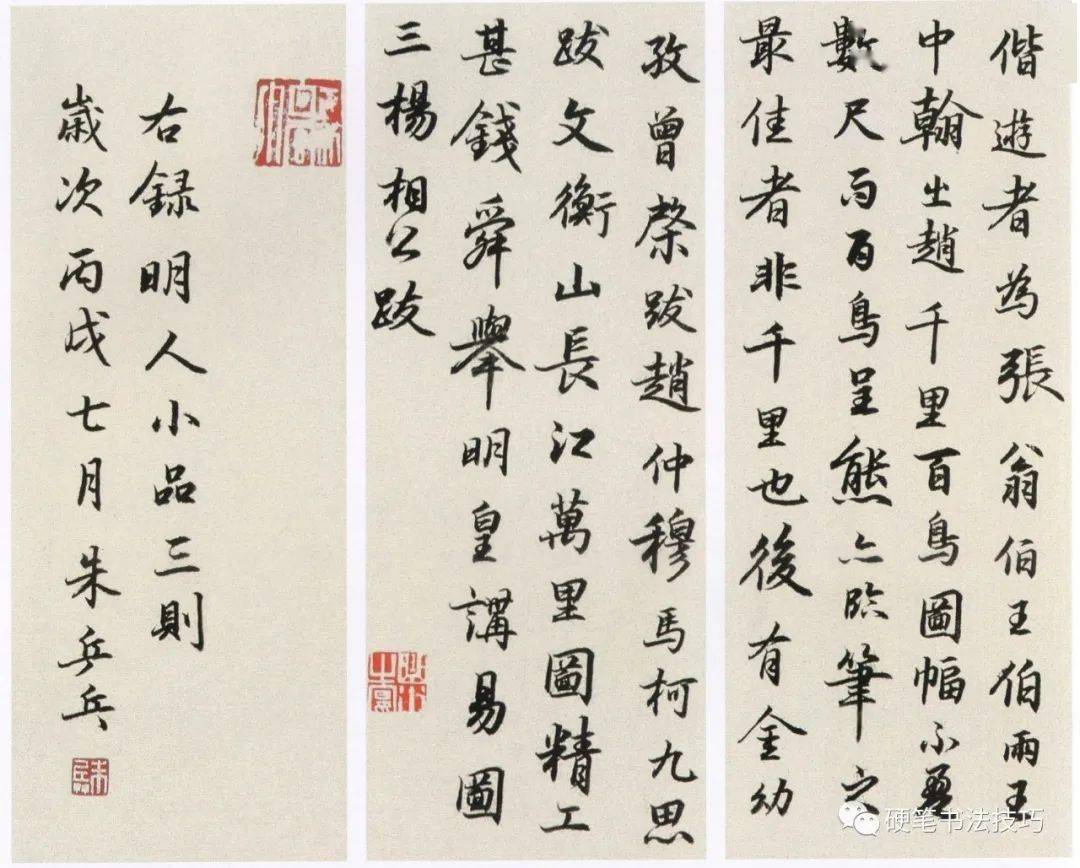 偕遊者為張翁伯王伯雨王
中翰出趙千里百鳥圖幅不盈
數尺而百鳥呈態亦臨筆之
最佳者非千里也後有金幼
孜曾棨跋趙仲穆馬柯九思
跋文衡山長江萬里圖精工
甚錢舜舉明皇講易圖
三楊相公跋
右録明人小品三則
歲次丙戌七月朱乒乓
硬笔书法技巧